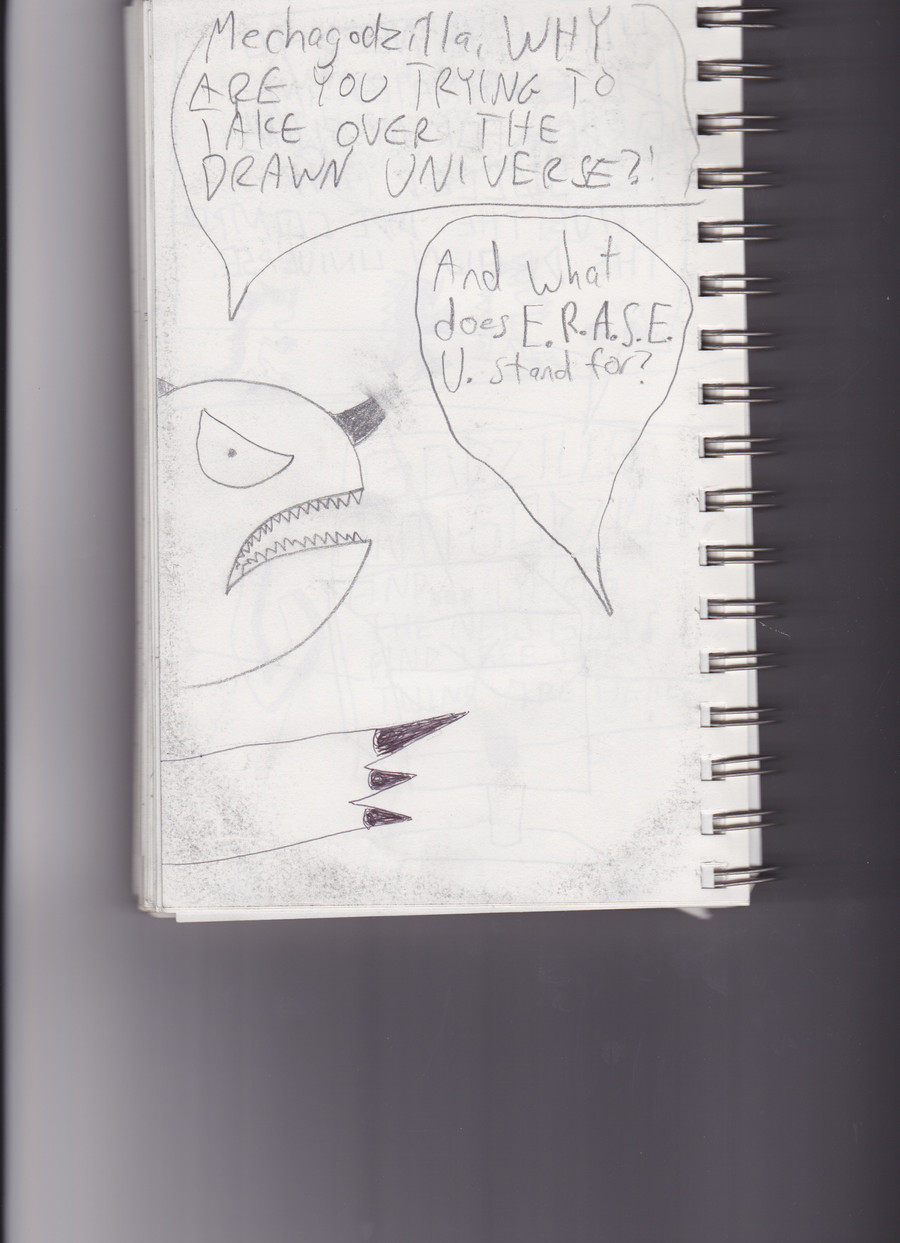 Mechagodzilla, WHY
ARE YOU TRYING TO
TAKE OVER THE
DRAWN UNIVERSE?!
And what
does E.R.A.S.E.
U. stand for?